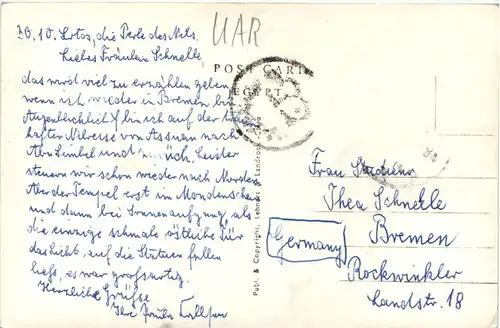 UAR
POST CARD
EGYPT
30.10. Artos, die Perle des Nils.
Liebes Fräulein Schnelle,
das wird viel zu erzählen geben
wenn ich wieder in Bremen bin
Augenblicklich bin ich auf der traum
hafter Nilreise von Assuan nach
Abu Simbel und zurück. Leider
steuern wir schon wieder nach Norden
Aber der Tempel erst im Mondenschein
und dann bei Sonnenaufgang, als
die einzige schmale östliche Tür
das Licht, auf die Statuen fallen
ließ, es war großartig.
Herzliche Grüße
Ihre
Publ. & Copyright, Lehnert & Landrock, Cairo
Frau
Thea Schnelle
Bremen
Germany
Rockwinkler
Landstr. 18